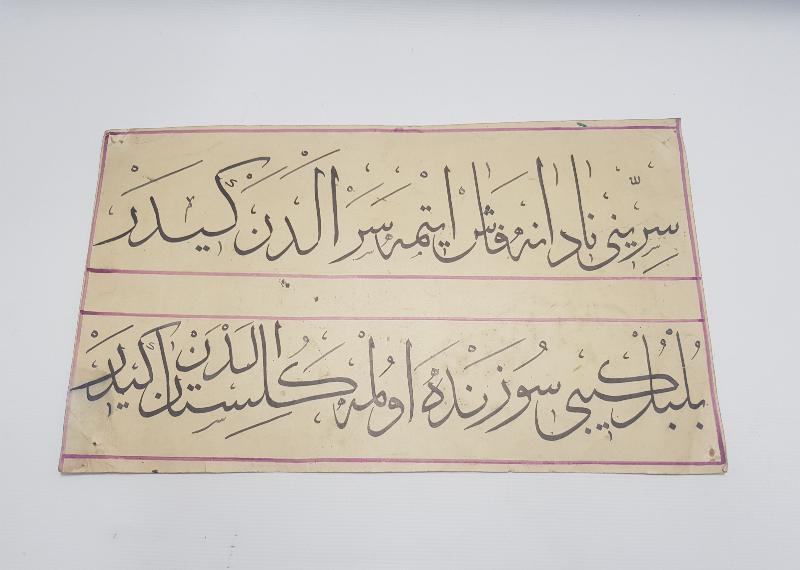 سِرِّينى نادانه فاش ايتمه سَرَ الدَن كَيدَر
بُلبُل كيبى سوزنده اولمه كُلستان الدن كيدر